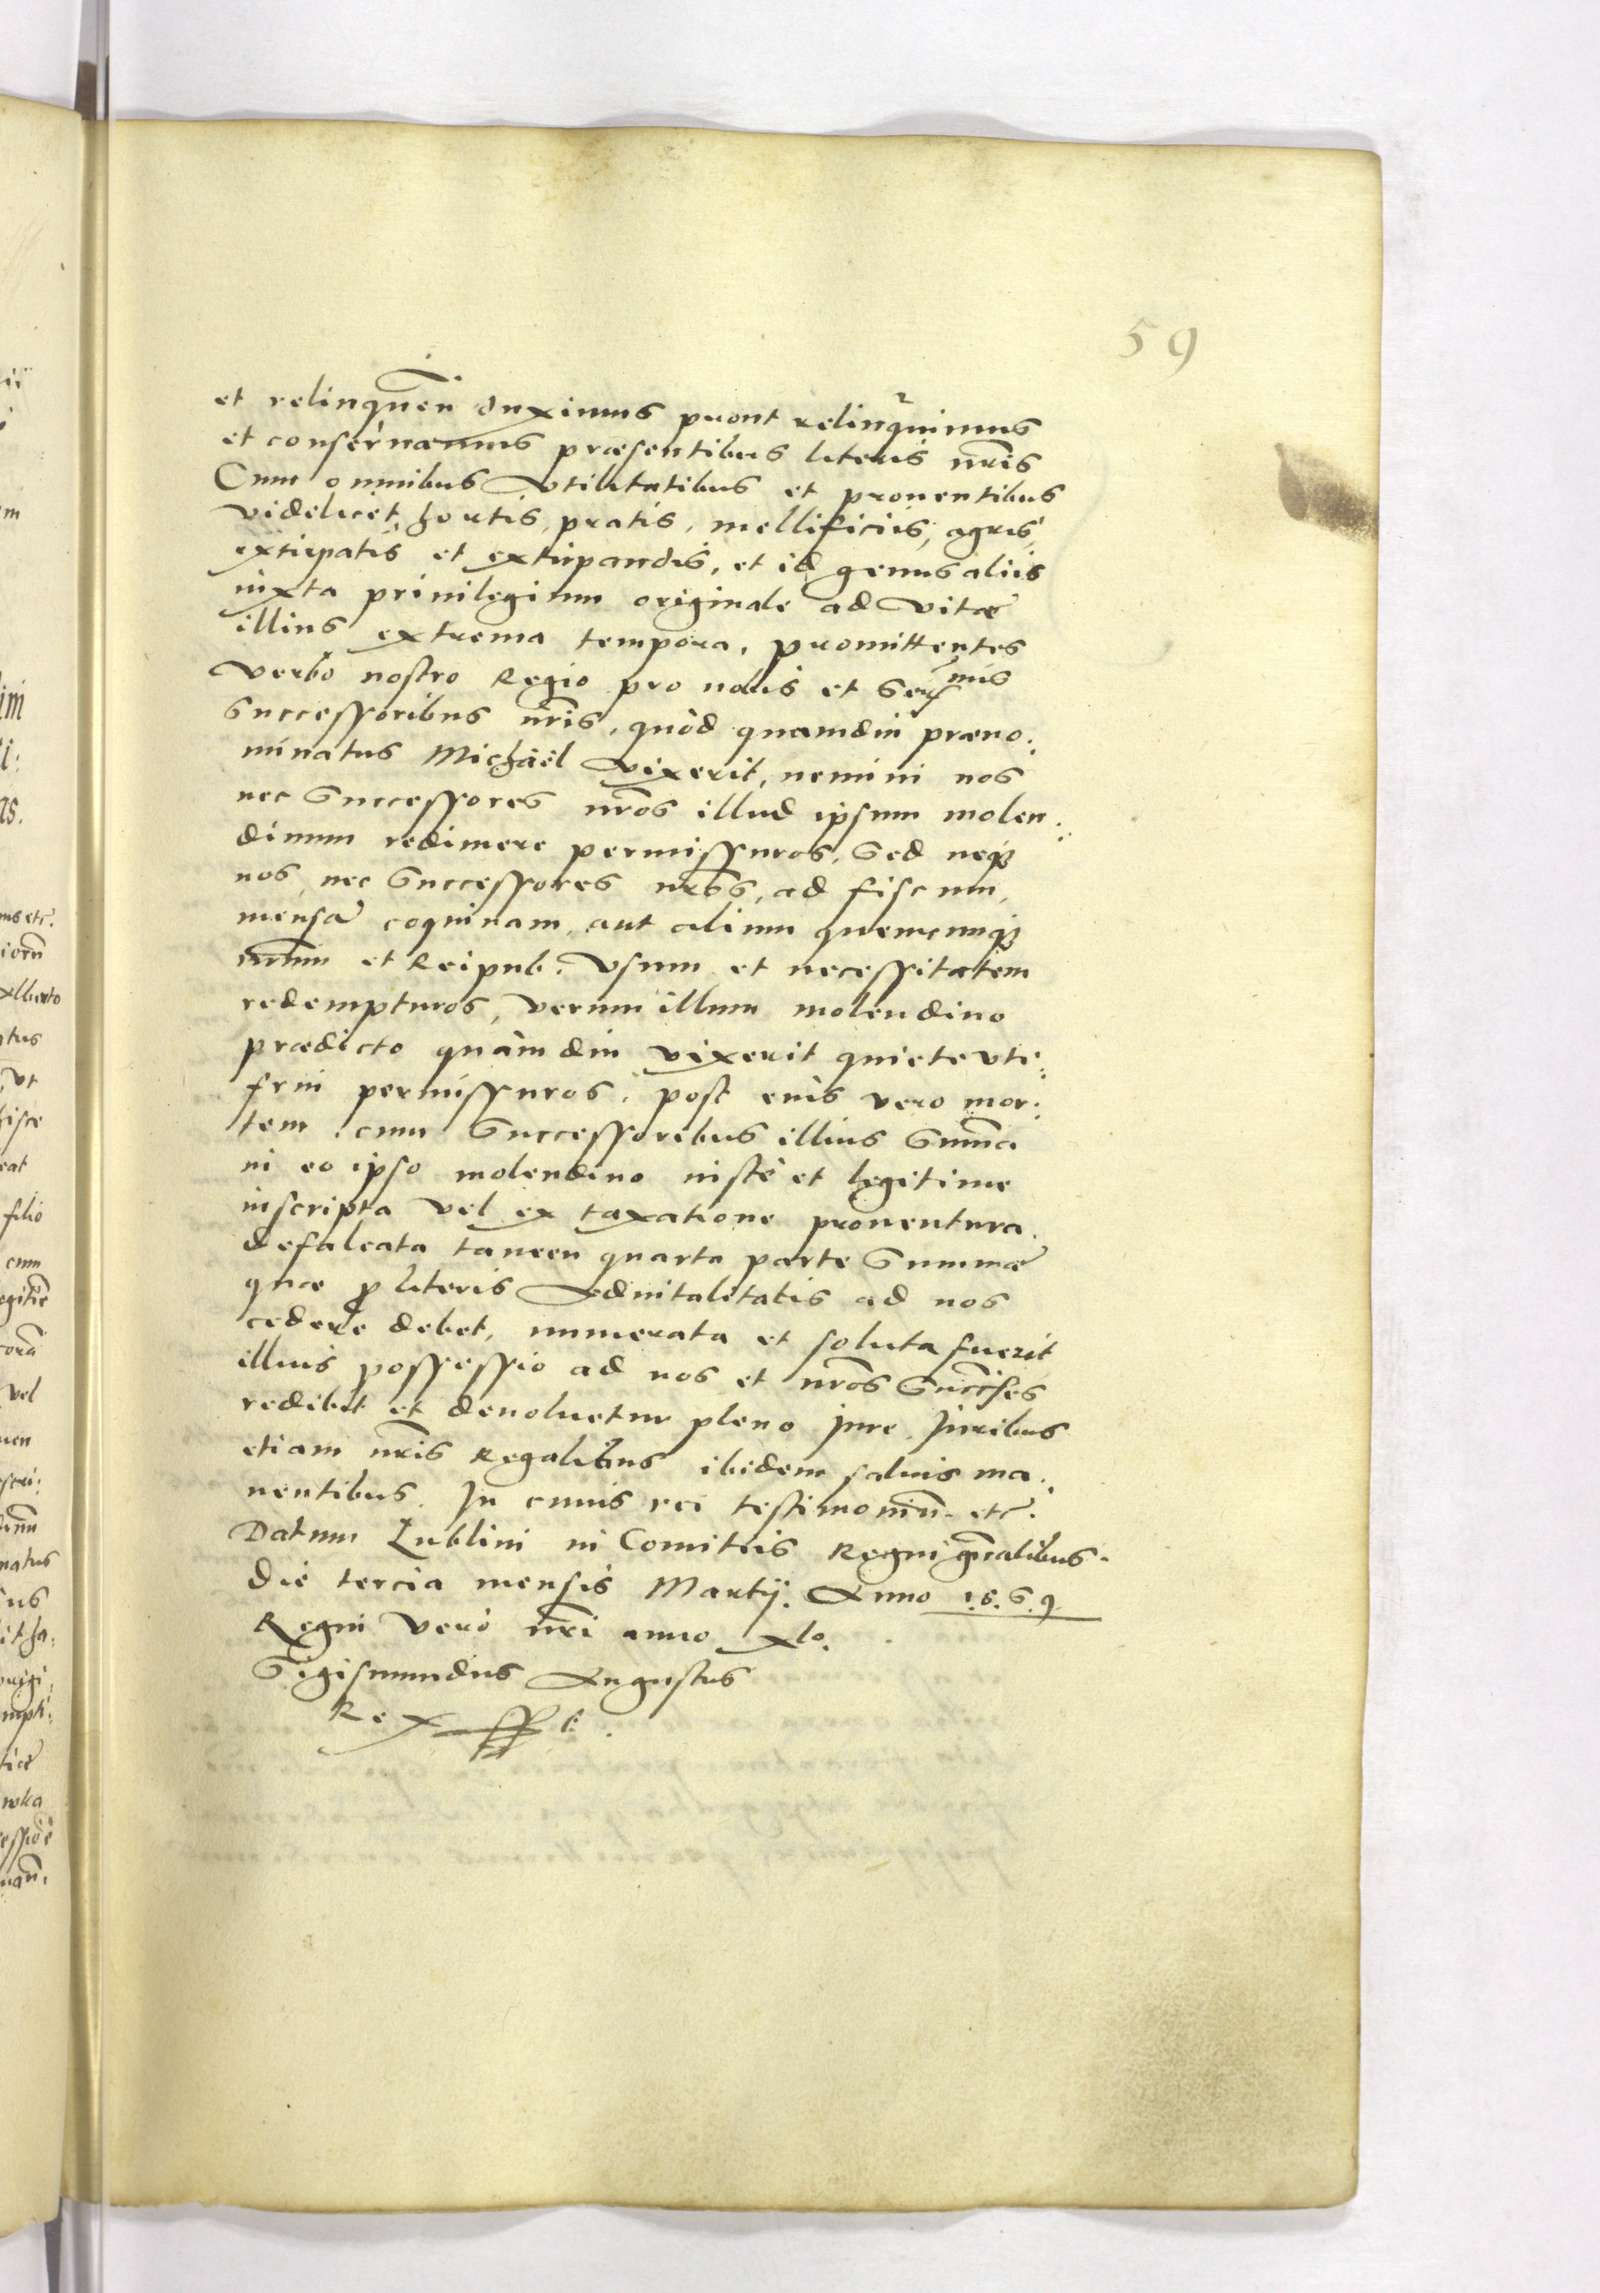 59
et relinquen̄ duximus prout relinquimus
et conseruamus præsentibus literis nr̄is
Cum omnibus vtilitatibus et prouentibus
videlicet hortis, pratis, mellificiis, agris,
extirpatis et extirpandis, et id genus aliis
iuxta priuilegium originale ad vitæ
illius extrema tempora, promittentes
verbo nostro Regio pro nobis et Serſmis
Successoribus nr̄is, quòd quamdiu præno:
minatus Michaël vixerit, nemini nos
nec Successores nr̄os illud ipsum molen:
dinum redimere permissuros, Sed neq3
nos, nec Successores nr̄os, ad fiscum,
mensā coquinam, aut alium quemcunq3
nr̄um et Reipub: vsum et necessitatem
redempturos, verum illum molendino
prædicto quàmdiu vixerit quiete vti:
frui permissuros, post eius vero mor:
tem cum Successoribus illius Sum̄a
in eo ipso molendino iustè et legitime
inscripta vel ex taxatione prouentura,
defalcata tamen quarta parte Summæ
quæ ꝑ literis Aduitalitatis ad nos
cedere debet, numerata et soluta fuerit
illius possessio ad nos et nr̄os Succ̄ses
redibit et deuoluetur pleno Jure, Juribus
etiam nr̄is Regalibus ibidem saluis ma:
nentibus. In cuius rei testimoniū etc̄.
Datum Lublini in Comitiis Regni gn̄alibus.
die tercia mensis Martij. Anno 1.5.6.9
Regni verò nr̄i anno xlo.
Sigismundus Augustus
Rex sst.